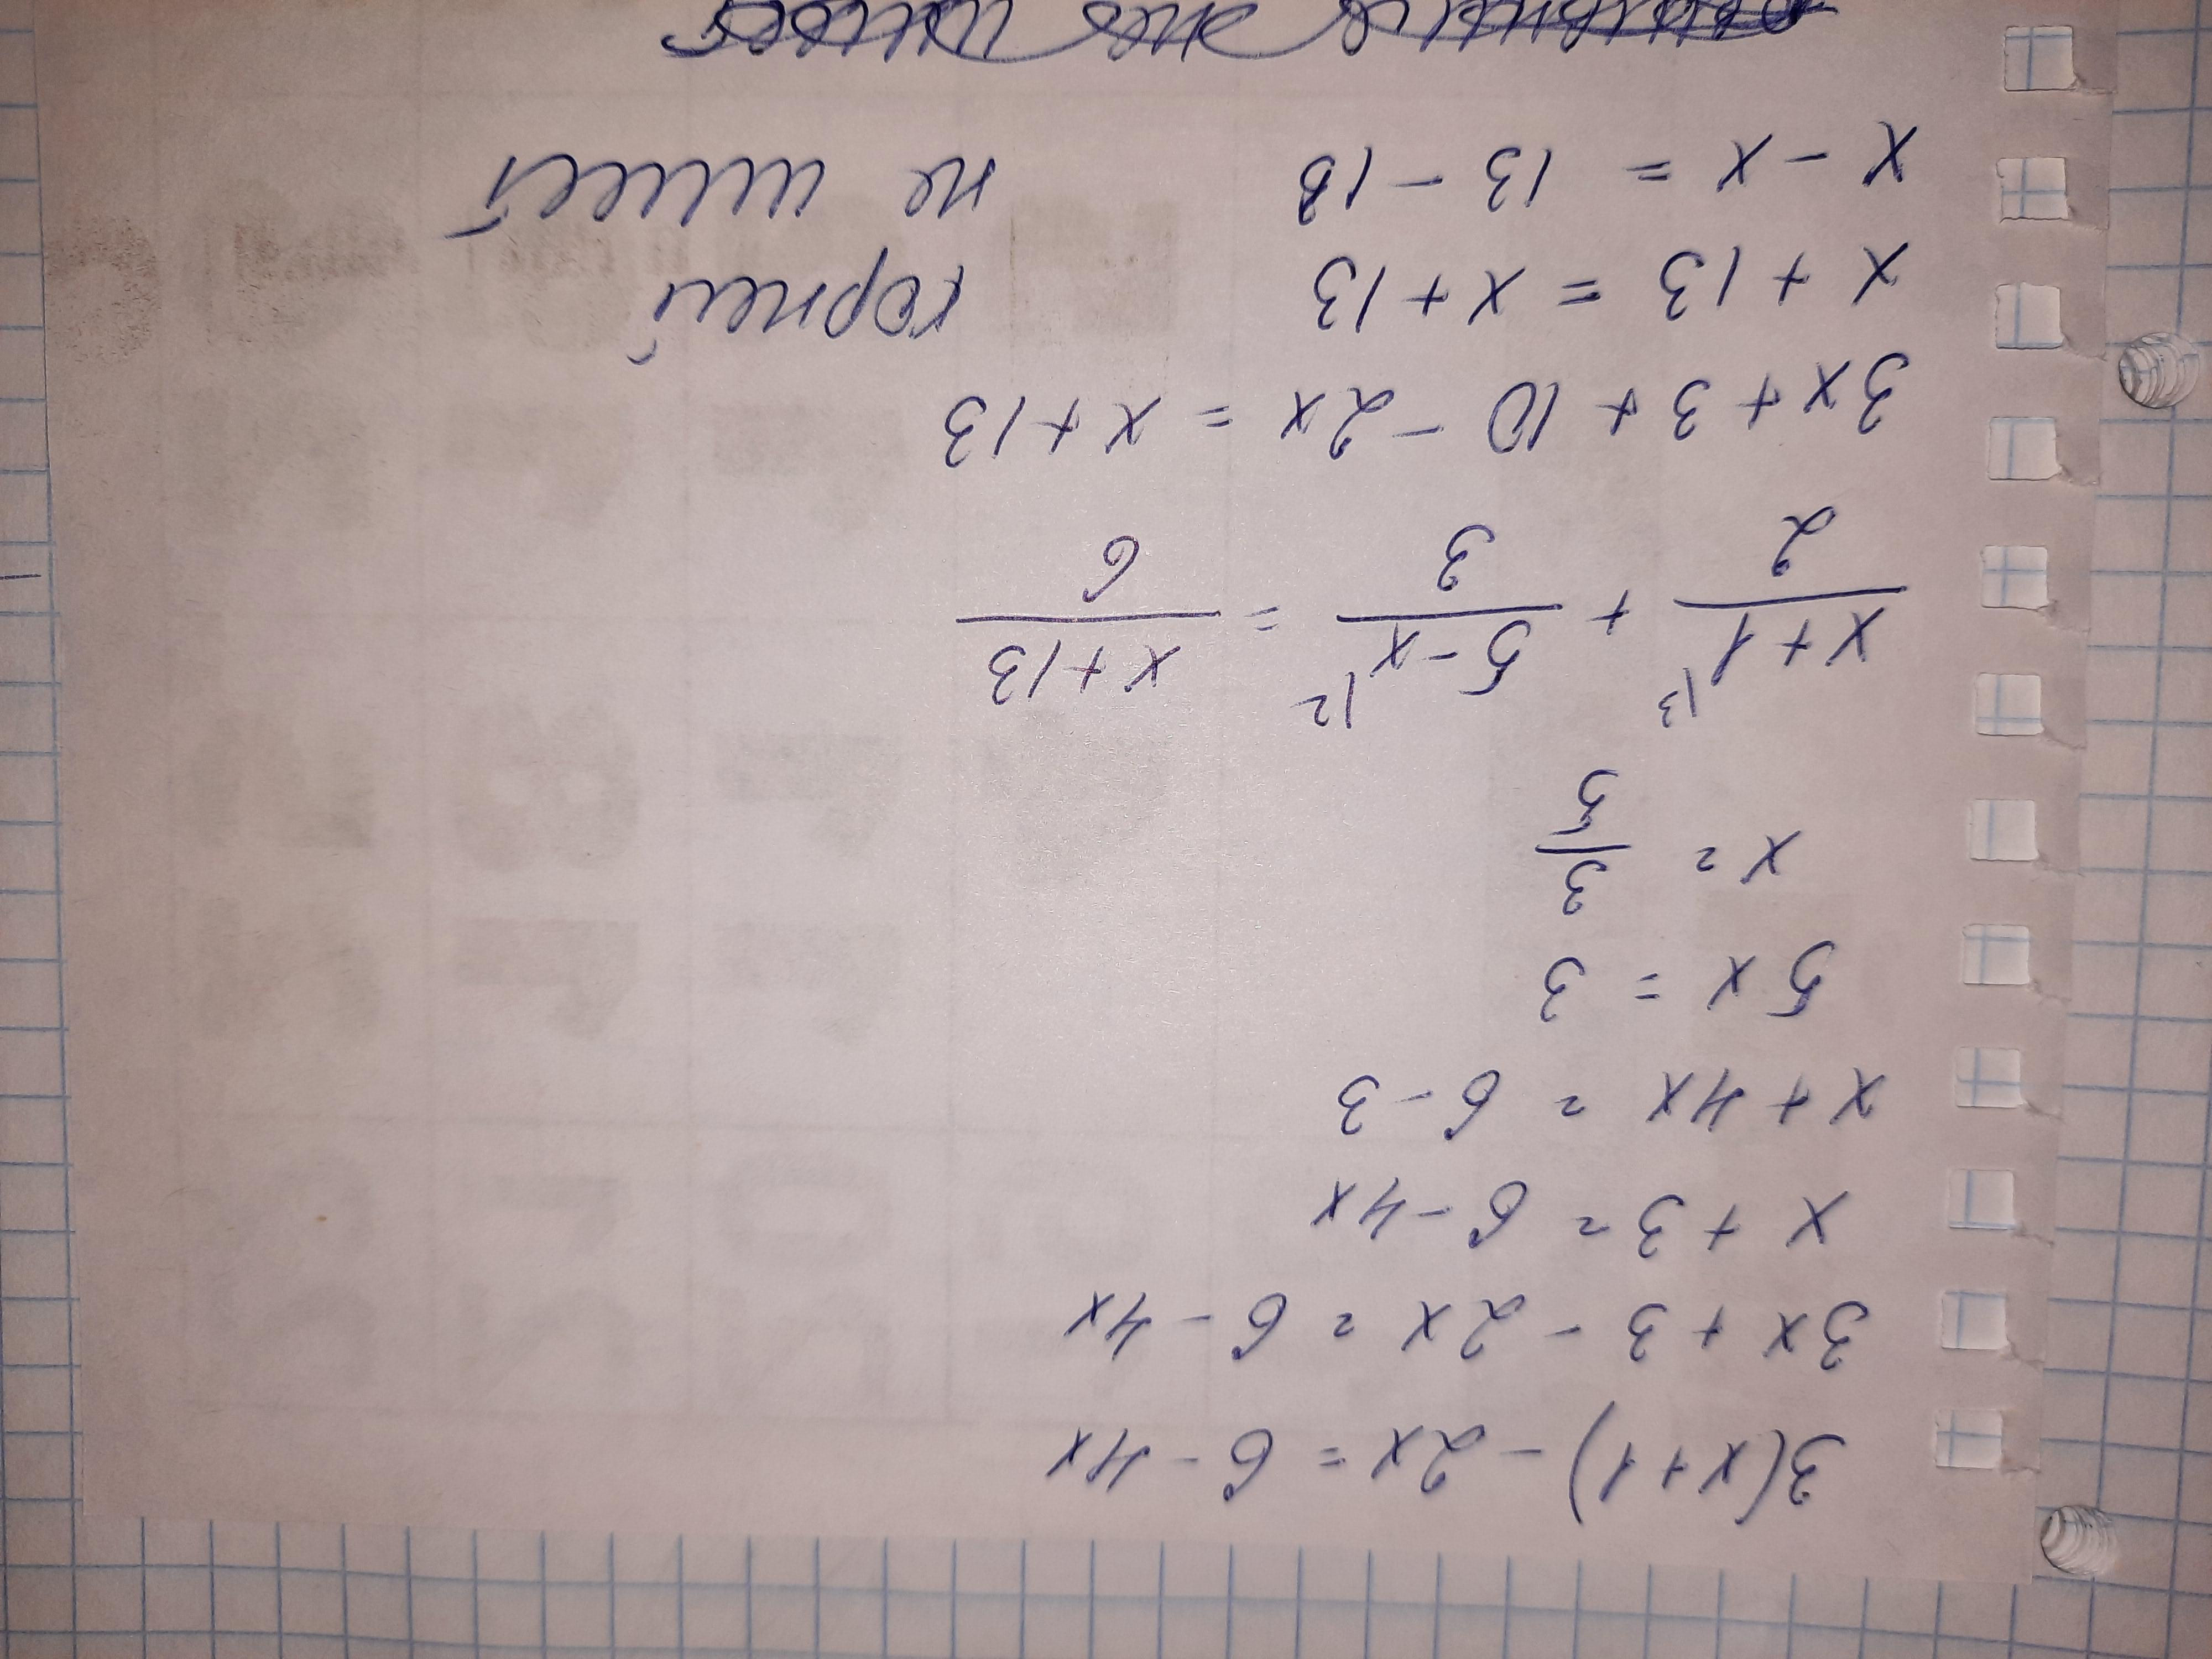 3(x+1) - 2x = 6 - 4x
3x + 3 - 2x = 6 - 4x
x + 3 = 6 - 4x
x + 4x = 6 - 3
5x = 3
x = 3/5
(x+1)/2 |3 + (5-x)/3 |2 = (x+13)/6
3x + 3 + 10 - 2x = x + 13
x + 13 = x + 13 корней
x - x = 13 - 13 не имеет
не имеет